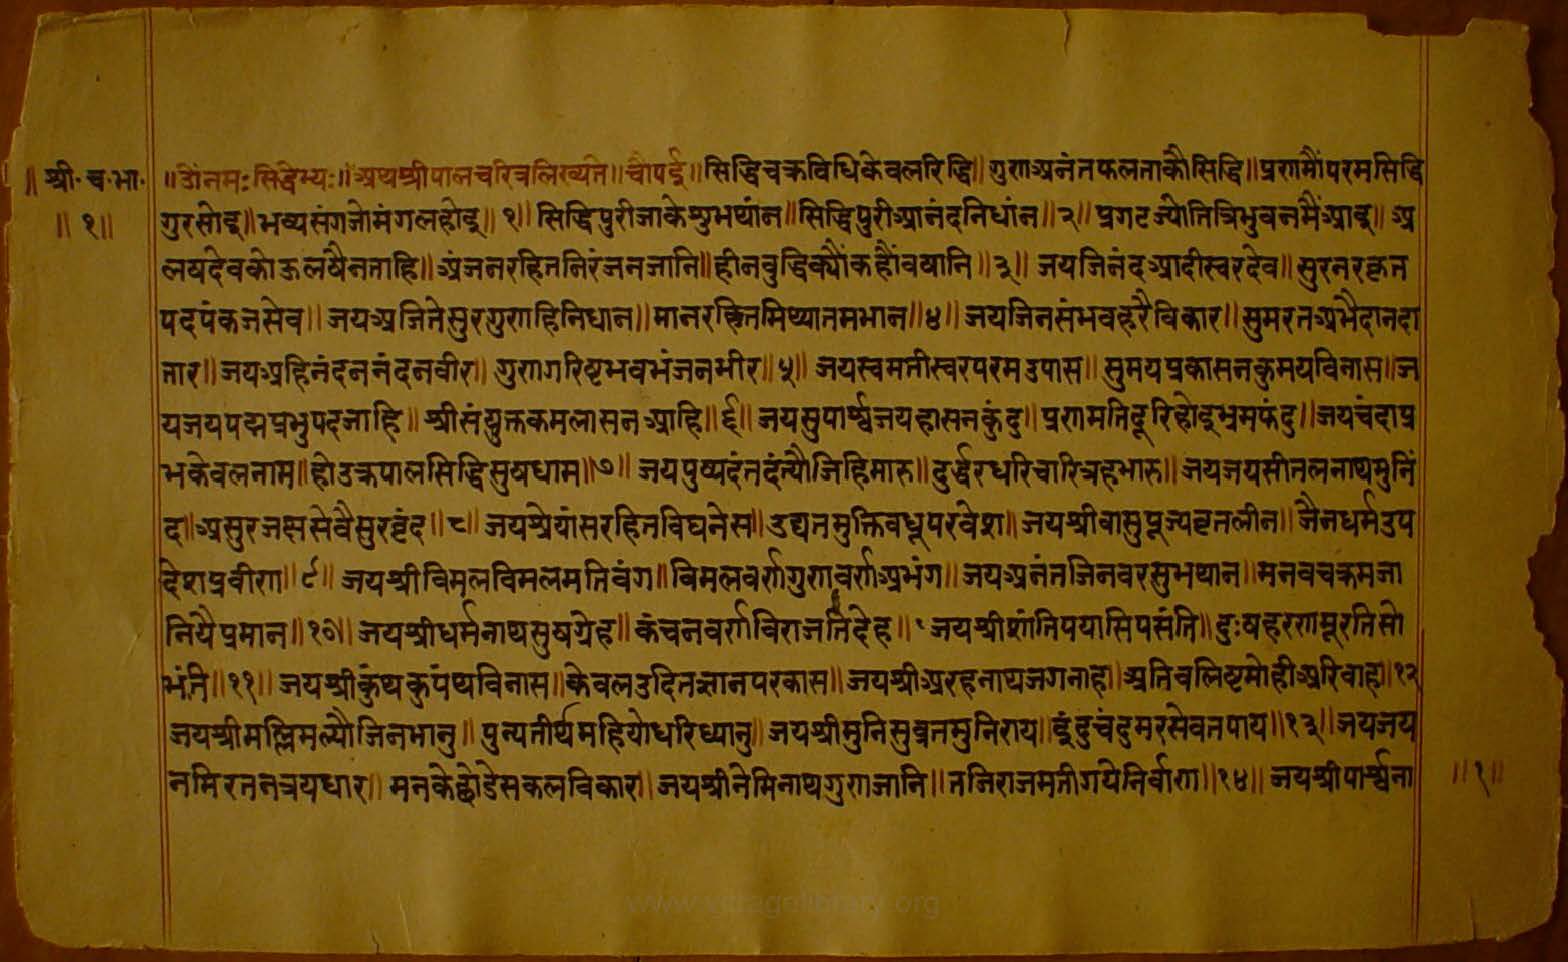 ॥ श्री॰ च॰ भा॰
॥ १ ॥
॥ उोंनमः सिद्धेभ्यः ॥ अथश्रीपालचरित्रलिख्यते ॥ चौपई ॥ सिद्धिचक्रविधिकेवलरिद्धि ॥ गुणअनंतफलताकौसिद्धि ॥ प्रणमौंपरमसिद्धि
गुरसोइ ॥ भव्यसंगजोमंगलहोइ ॥ १ ॥ सिद्धिपुरीजाकेशुभथांन ॥ सिद्धिपुरीआनंदनिधांन ॥ २ ॥ प्रगटज्योतित्रिभुवनमैंआइ ॥ अ
लयदेवकोऊलयैनताहि ॥ अंजनरहितनिरंजनजानि ॥ हीनबुद्धिक्यौंकहौंवषानि ॥ ३ ॥ जयजिनंदआदीस्वरदेव ॥ सुरनरकृत
पदपंकजसेव ॥ जयअजितेसुरगुणहिनिधान ॥ मानरहितमिथ्यातमभान ॥ ४ ॥ जयजिनसंभवहरैविकार ॥ सुमरतअभैदानदा
तार ॥ जयअहिनंदननंदनवीर ॥ गुणगरिष्टभवभंजनभीर ॥ ५ ॥ जयस्वमतीस्वरपरमउपास ॥ सुमयप्रकासनकुमयविनास ॥ ज
यजयपद्मप्रभुपदजाहि ॥ श्रीसंयुक्तकमलासनआहि ॥ ६ ॥ जयसुपार्श्वजयहासनकुंदु ॥ प्रणमतिदूरिहोइभ्रमफंदु ॥ जयचंदाप्र
भकेवलनाम ॥ होउक्रपालसिद्धिसुयधाम ॥ ७ ॥ जयपुष्पदंतदंत्यौजिहिमारु ॥ दुर्द्धरधरिचारित्रहभारु ॥ जयजयसीतलनाथमुनिं
द ॥ असुरजक्षसेवैसुरवृंद ॥ ८ ॥ जयश्रेयांसरहितविघनेस ॥ उद्यतमुक्तिवधूपरवेश ॥ जयश्रीवासुपूज्यवृतलीन ॥ जैनधर्मउप
देशप्रवीण ॥ ९ ॥ जयश्रीविमलविमलमतिवंग ॥ विमलवर्णगुणवर्णअभंग ॥ जयअनंतजिनवरसुभथान ॥ मनवचक्रमजा
नियैप्रमान ॥ १० ॥ जयश्रीधर्मनाथसुषग्रेह ॥ कंचनवर्णविराजतिदेह ॥ जयश्रीशांतिपयासिपसंति ॥ दुःषहरणमूरतिसो
भंति ॥ ११ ॥ जयश्रीकुंथकुपंथविनास ॥ केवलउदितज्ञानपरकास ॥ जयश्रीअरहनाथजगनाह ॥ अतिवलिष्टमोहीअरिवाह ॥ १२
जयश्रीमल्लिमल्यौजिनभानु ॥ पुन्यतीर्थमहियोधरिध्यानु ॥ जयश्रीमुनिसुव्रतमुनिराय ॥ इंदुचंदुमरसेवतपाय ॥ १३ ॥ जयजय
नमिरतनत्रयधार ॥ मनकेछोडेसकलविकार ॥ जयश्रीनेमिनाथगुणजानि ॥ तजिराजमतीगयेनिर्वाण ॥ १४ ॥ जयश्रीपार्श्वना
॥ १ ॥